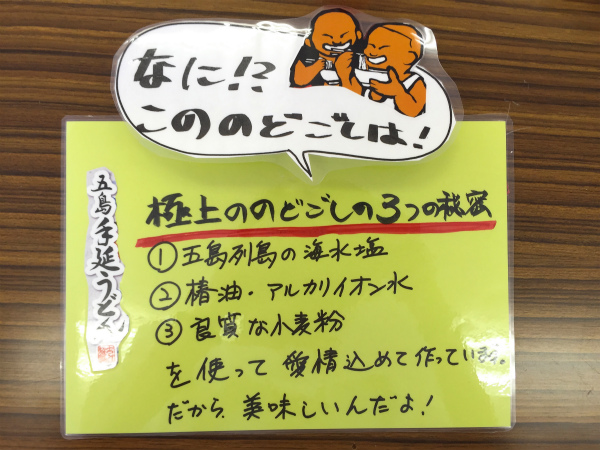 なに!?
こののどごしは!
五島手延うどん
極上ののどごしの3つの秘密
①五島列島の海水塩
②椿油・アルカリイオン水
③良質な小麦粉
を使って愛情込めて作っています。
だから美味しいんだよ!